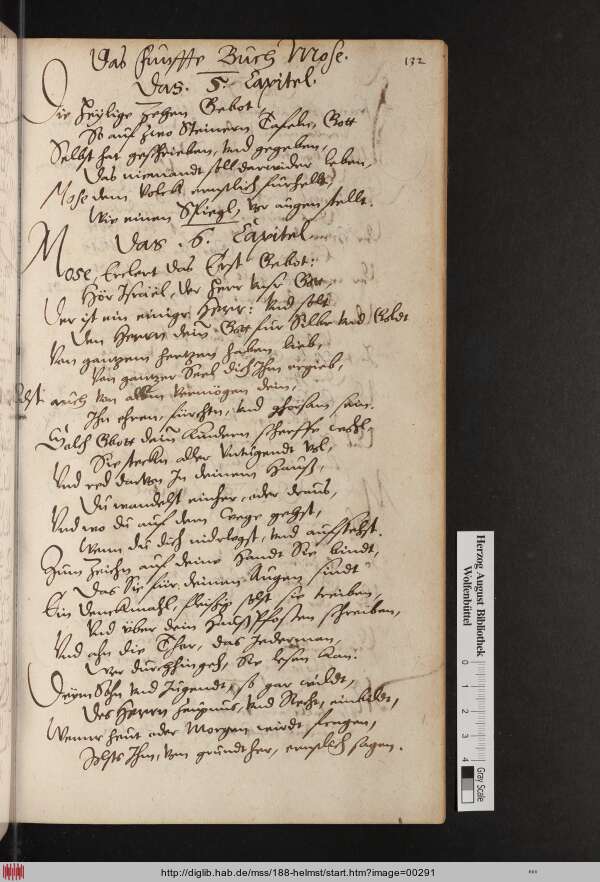 Das Fünffte Buch Mose.
132
Das. 5. Capitel.
Die Heÿlige Zehen Gebot
So auf zwo Steinern Tafeln, Gott
Selbst hat geschrieben, vnd gegeben,
Das niemandt soll darwider leben,
Mose dem Volck ernstlich fürhelt,
Wie einen Spiegl, vor augen stellt.
Das .6. Capitel.
Mose, Erclert das Erst Gebot:
Hör Israel, der Herr vnser Gott,
Der ist ein einiger Herr: Vnd solt
Den Herrn dein Gott für Silber vnd Goldt
Von gantzem hertzen haben lieb,
Von gantzer Seel dich Ihm ergieb,
auch von allem vermögen dein,
Ihn ehren, fürchtn, vnd ghorsam sein.
Solch Gbott dein Kindern scherffe wohl.
Sie steckn aller Vntugendt vol,
Vnd red davon In deinem Hauß,
Du wandelst einher, oder drauß,
Vnd wo du auf dem Wege gehst,
Wenn du dich niderlegst, vnd aufstehst.
Zum Zeichn auf deine Handt Sie bindt,
Das Sie für deinen Augen sindt
Ein Denckmahl, fleissig solst sie treiben,
Vnd über dein Haußpfosten schreiben,
Vnd ahn die Thor, das Jederman,
Der durchhingeh, Sie lesen kan.
Deinn Sohn vnd Jugendt, so gar wildt,
Des Herrn Zeugnus, vnd Recht, einbildt,
Wenn heut oder Morgen wirdt fragen,
Solsts Ihm, von grundt her, ernstlich sagen.
Herzog August Bibliothek
Wolfenbüttel
0 1 2 3 4
Gray Scale
http://diglib.hab.de/mss/188-helmst/start.htm?image=00291